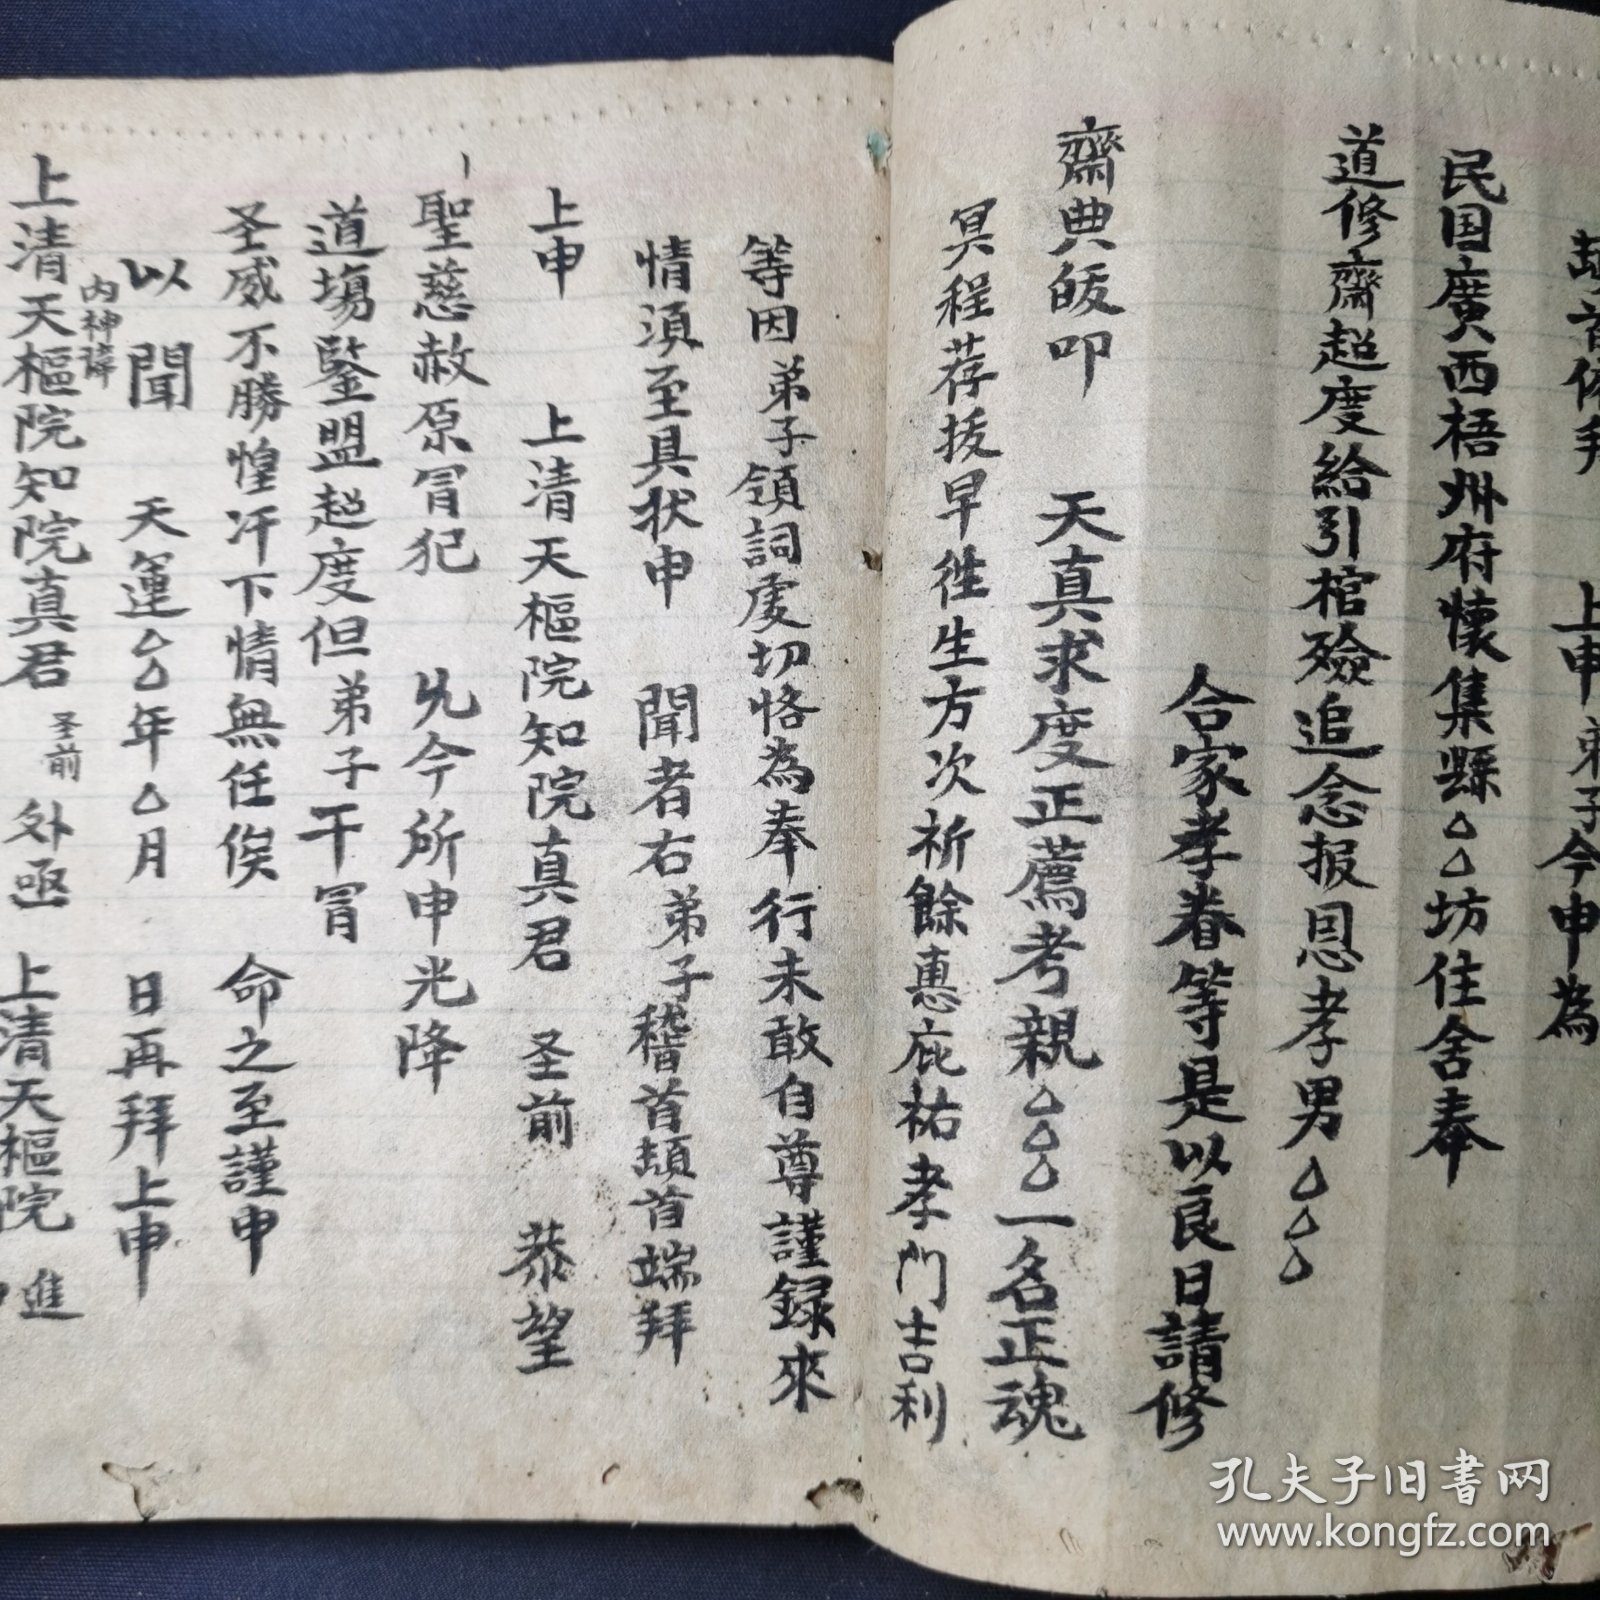 首依拜 上申弟子今申為
民国廣西梧州府懷集縣△△坊住舍奉
道修齋超度給引棺殮追念报恩孝男△△△
合家孝眷等是以良日請修
齋典皈叩 天真求度正薦考親△△△一名正魂
冥程荐拔早徃生方次祈餘惠庇祐孝門吉利
等因弟子領詞虔切恪為奉行未敢自尊謹録來
情湏至具状申 聞者右弟子稽首頓首端拜
上申 上清天樞院知院真君 圣前 恭望
聖慈赦原冒犯 允今所申光降
道場鍳盟超度但弟子干冒
圣威不勝惶汗下情無任俟 命之至謹申
以聞 天運△△年△月 日再拜上申
内神諱
上清天樞院知院真君 圣前 外函 上清天樞院 進
孔夫子旧书网
www.kongfz.com